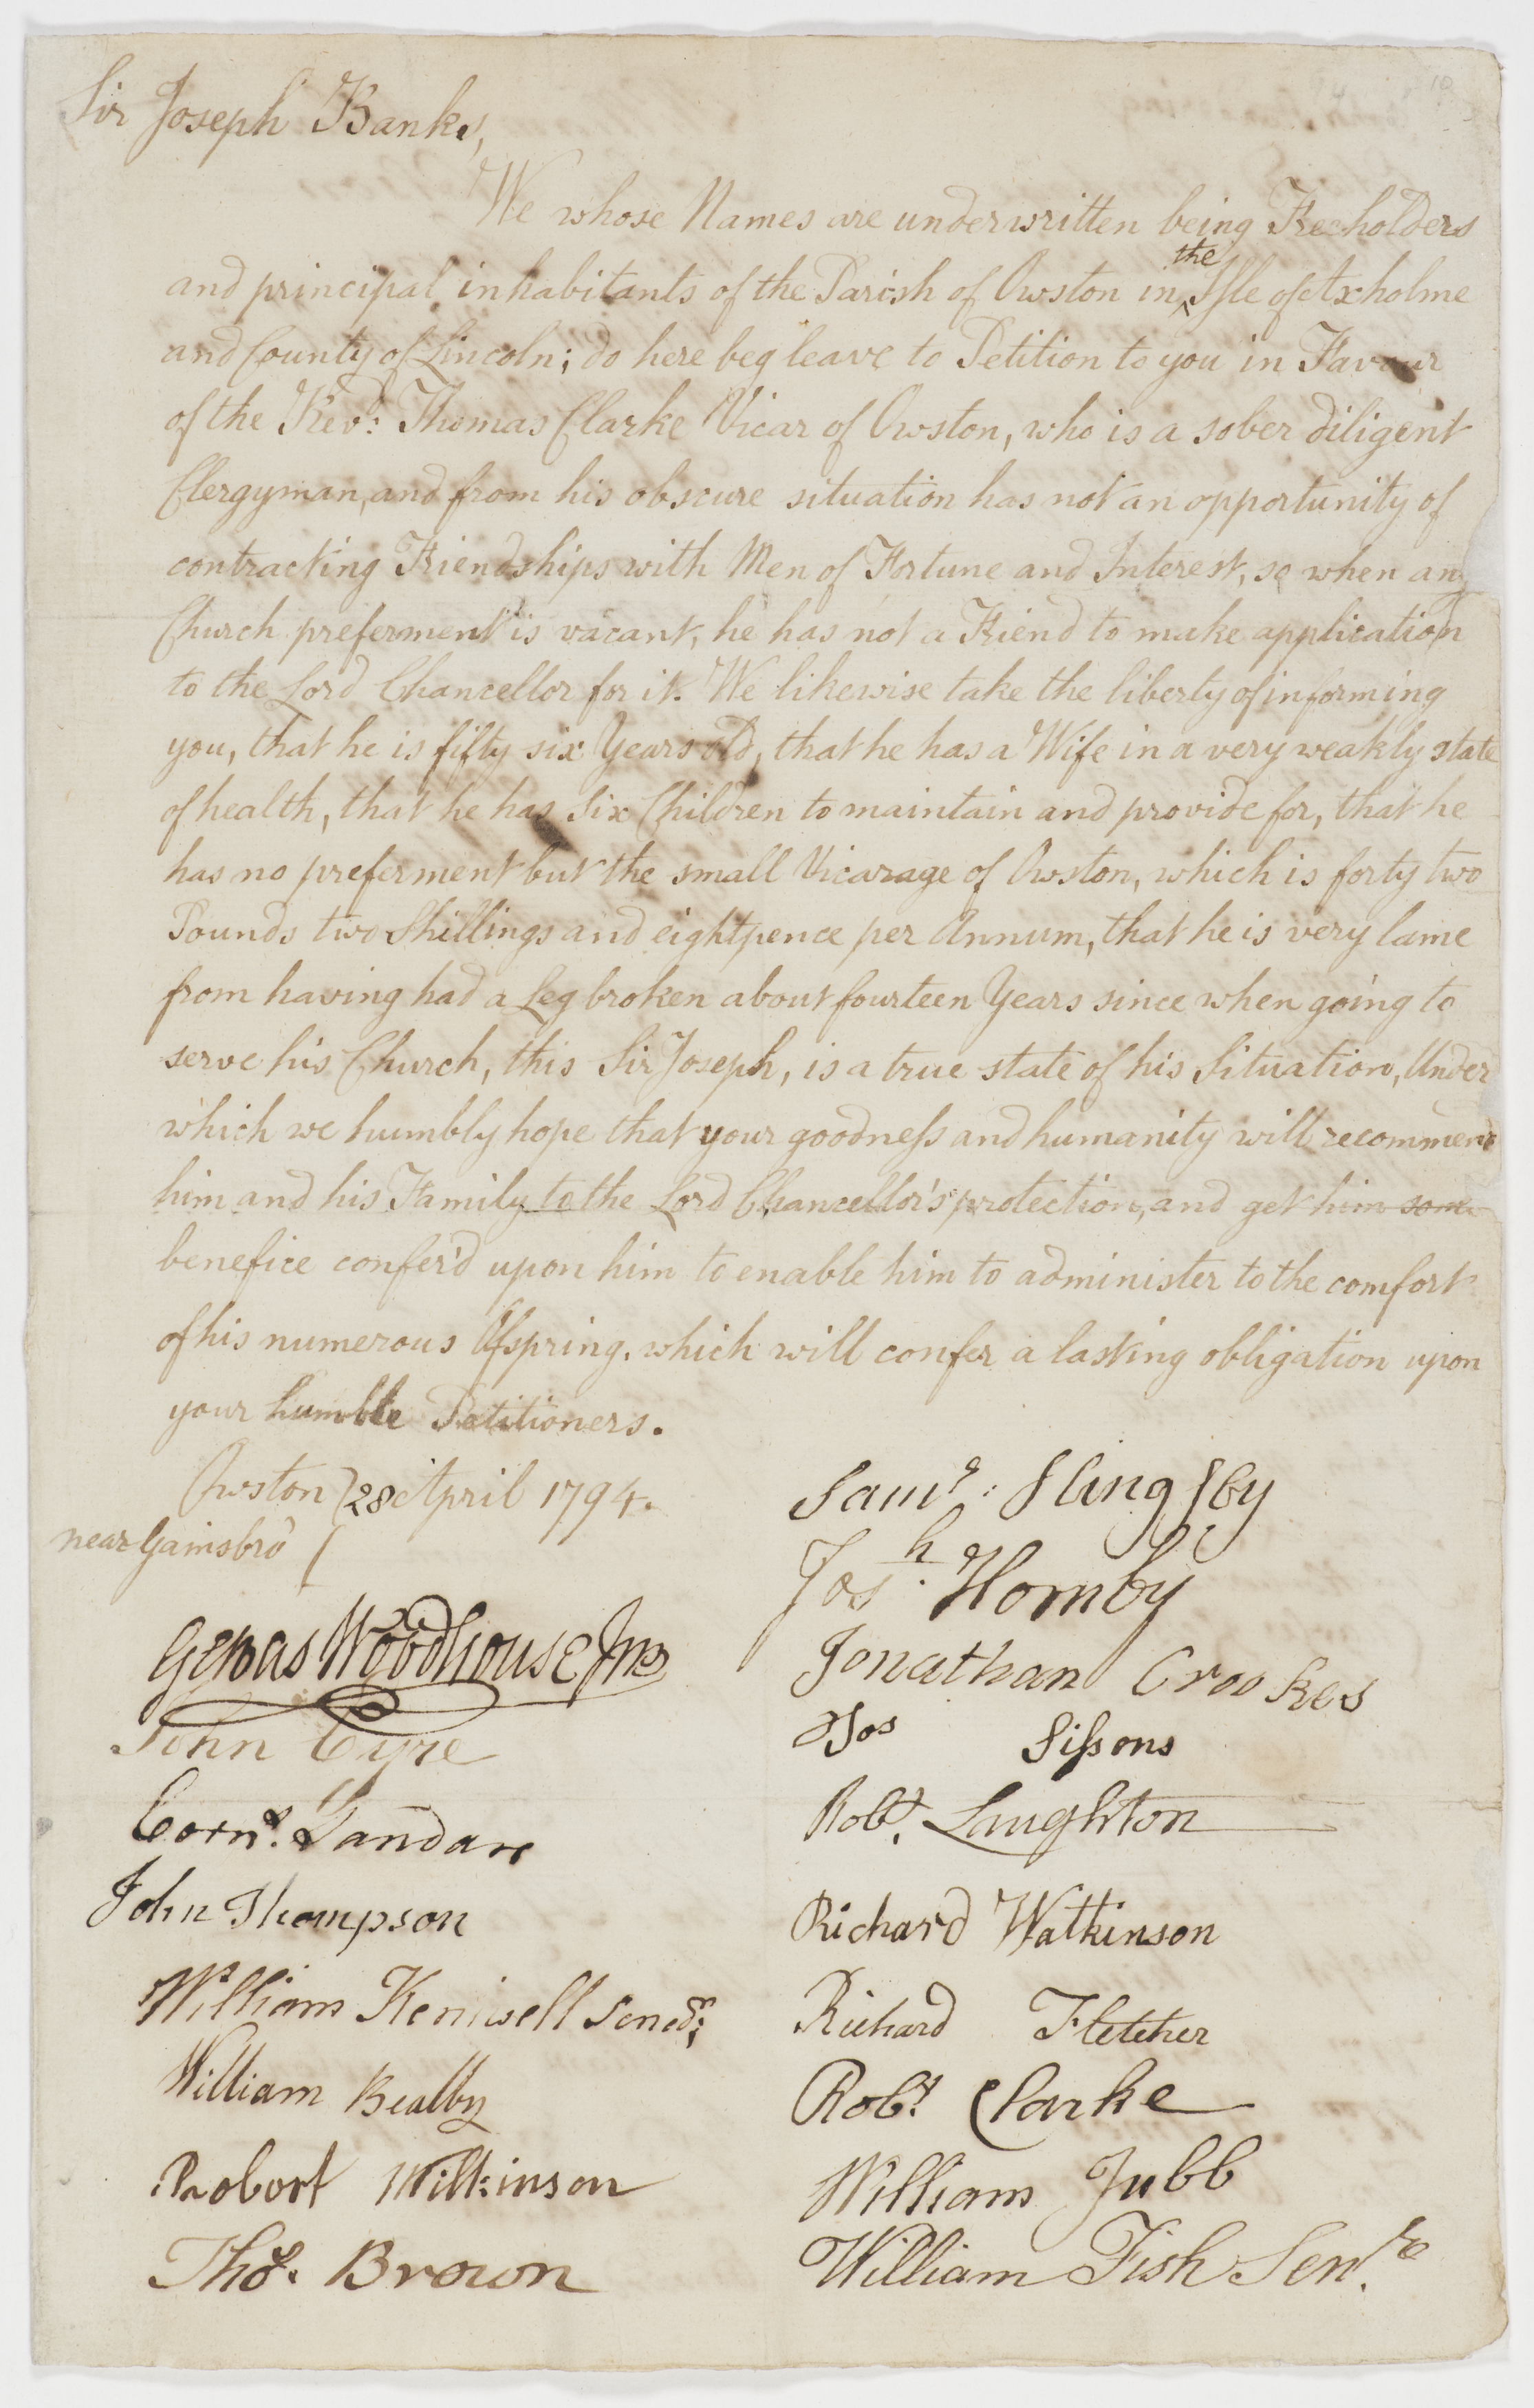 Sir Joseph Banks,
We whose Names are underwritten being Freeholders
and principal inhabitants of the Parish of Owston in the Isle of Axholme
and County of Lincoln; do here beg leave to Petition to you in Favour
of the Revd: Thomas Clarke Vicar of Owston, who is a sober diligent
Clergyman, and from his obscure situation has not an opportunity of
contracting Friendships with Men of Fortune and Interest, so when any
Church preferment is vacant, he has not a Friend to make application
to the Lord Chancellor for it. We likewise take the liberty of informing
you, that he is fifty six Years old, that he has a Wife in a very weakly state
of health, that he has Six Children to maintain and provide for, that he
has no preferment but the small Vicarage of Owston, which is forty two
Pounds two Shillings and eightpence per Annum, that he is very lame
from having had a Leg broken about fourteen Years since when going to
serve his Church, this Sir Joseph, is a true state of his Situation, Under
which we humbly hope that your goodness and humanity will recommend
him and his Family to the Lord Chancellor's protection, and get him some
benefice confer'd upon him to enable him to administer to the comfort
of his numerous Ofspring, which will confer a lasting obligation upon
your humble Petitioners.
Owston 28 April 1794.
near Gainsbro'
Saml: Slingsby
Josh. Hornby
Gervas Woodhouse Junr
Jonathan Crookes
John Eyre
Jos Sissons
Cornl. Gandare
Robt. Laughton
John Thompson
Richard Watkinson
William Keniwell Senor;
Richard Fletcher
William Bealby
Robt. Clarke
Robert Wilkinson
William Jubb
Thos. Brown
William Fish Senr.